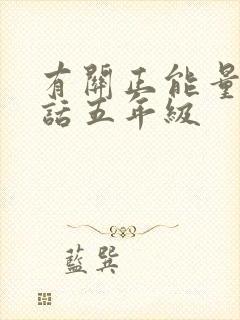 有關正能量
話五年級
藍巽